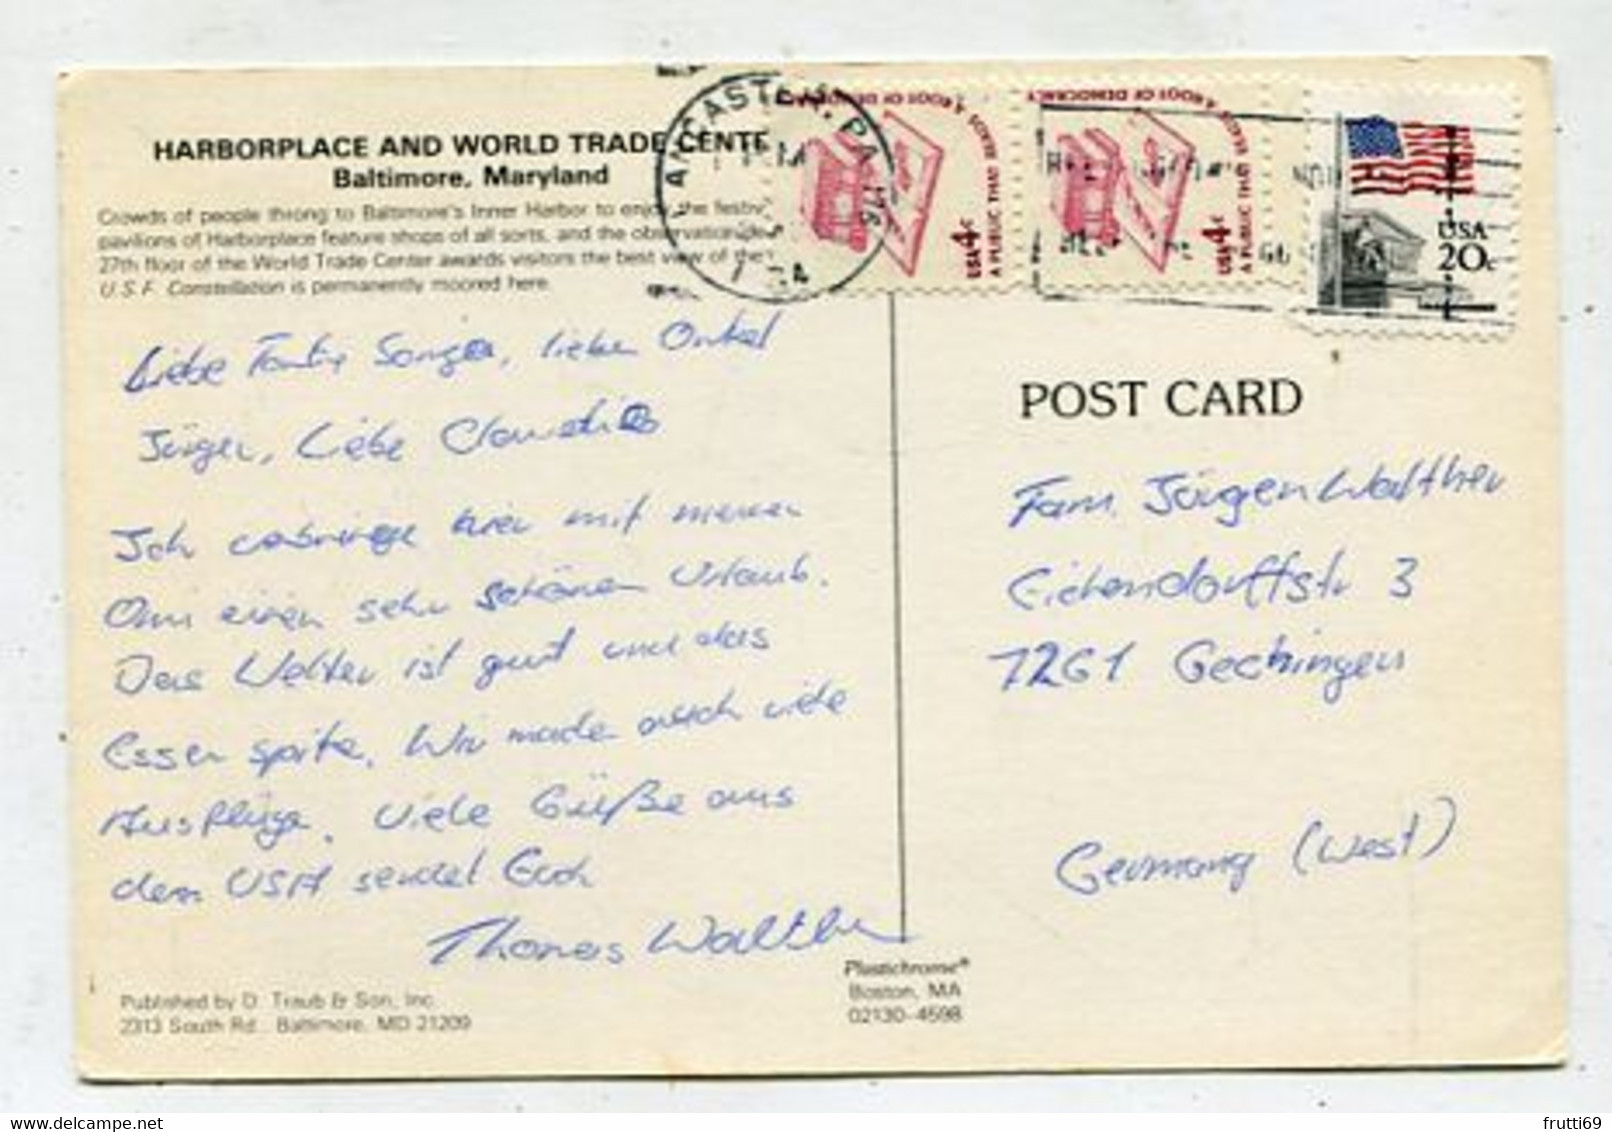 HARBORPLACE AND WORLD TRADE CENTE
Baltimore, Maryland
Crowds of people throng to Baltimore's Inner Harbor to enjoy the festiv
pavilions of Harborplace feature shops of all sorts, and the observation
27th floor of the World Trade Center awards visitors the best view of the
U.S.F. Constellation is permanently moored here.
Liebe Tante Sonja, lieber Onkel
Jürgen, Liebe Claudia
Ich verbringe hier mit meiner
Omi einen sehr schönen Urlaub.
Das Wetter ist gut und das
Essen spitze. Wir machen auch viele
Ausflüge. Viele Grüße aus
den USA sendet Euch
Thomas Walther
Published by D. Traub & Son, Inc.
2313 South Rd. Baltimore, MD 21209
Plastichrome®
Boston, MA
02130-4598
ANCASTER, PA 176
PM
USA 4c
A PUBLIC THAT READS A ROOT OF DEMOCRACY
USA 4c
A PUBLIC THAT READS A ROOT OF DEMOCRACY
USA
20c
POST CARD
Fam. Jürgen Walther
Eichendorffstr 3
7261 Gechingen
Germany (West)
frutti69